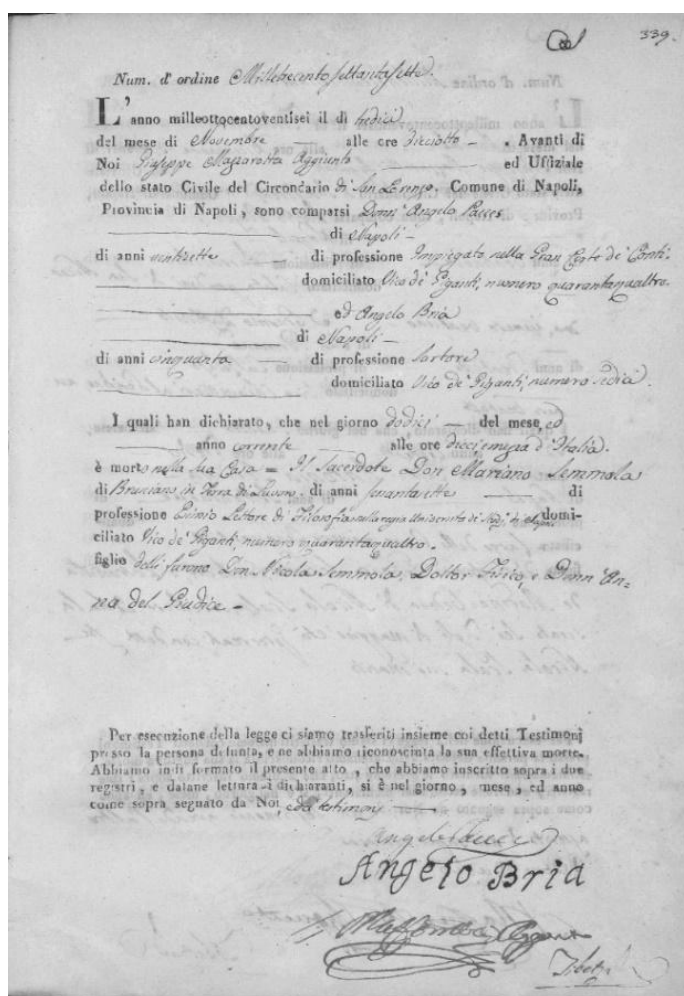 339.
Num. d' ordine Milletrecentosettantasette.
L' anno milleottocentoventisei il di tredici
del mese di Novembre alle ore dieciotto . Avanti di
Noi Giuseppe Mazzarotta Aggiunto ed Uffiziale
dello stato Civile del Circondario di San Lorenzo, Comune di Napoli,
Provincia di Napoli, sono comparsi Donn' Angelo Pacces
di Napoli
di anni ventisette di professione Impiegato nella Gran Corte de' Conti
domiciliato Vico de' Giganti, numero quarantaquattro.
ed Angelo Bria
di Napoli
di anni cinquanta di professione Sartore
domiciliato Vico de' Giganti, numero sedici.
I quali han dichiarato, che nel giorno dodici del mese, ed
anno corrente alle ore dieci e mezza d' Italia.
è morto nella sua Casa = Il Sacerdote Don Mariano Semmola
di Brusciano in Terra di Lavoro. di anni di
professione Lettore di Filosofia nella regia Università de' Studj di domi-
ciliato Vico de' Giganti, numero quarantaquattro.
figlio delli furono Don Nicola Semmola, Dottor Fisico, e Donn' An=
na del Giudice
Per esecuzione della legge ci siamo trasferiti insieme coi detti Testimonj
presso la persona defunta, e ne abbiamo riconosciuta la sua effettiva morte.
Abbiamo indi formato il presente atto, che abbiamo inscritto sopra i due
registri, e datane lettura ai dichiaranti, si è nel giorno, mese, ed anno
come sopra segnato da Noi, e da' testimonj
Angelo Pacces
Angelo Bria
Aggiunto